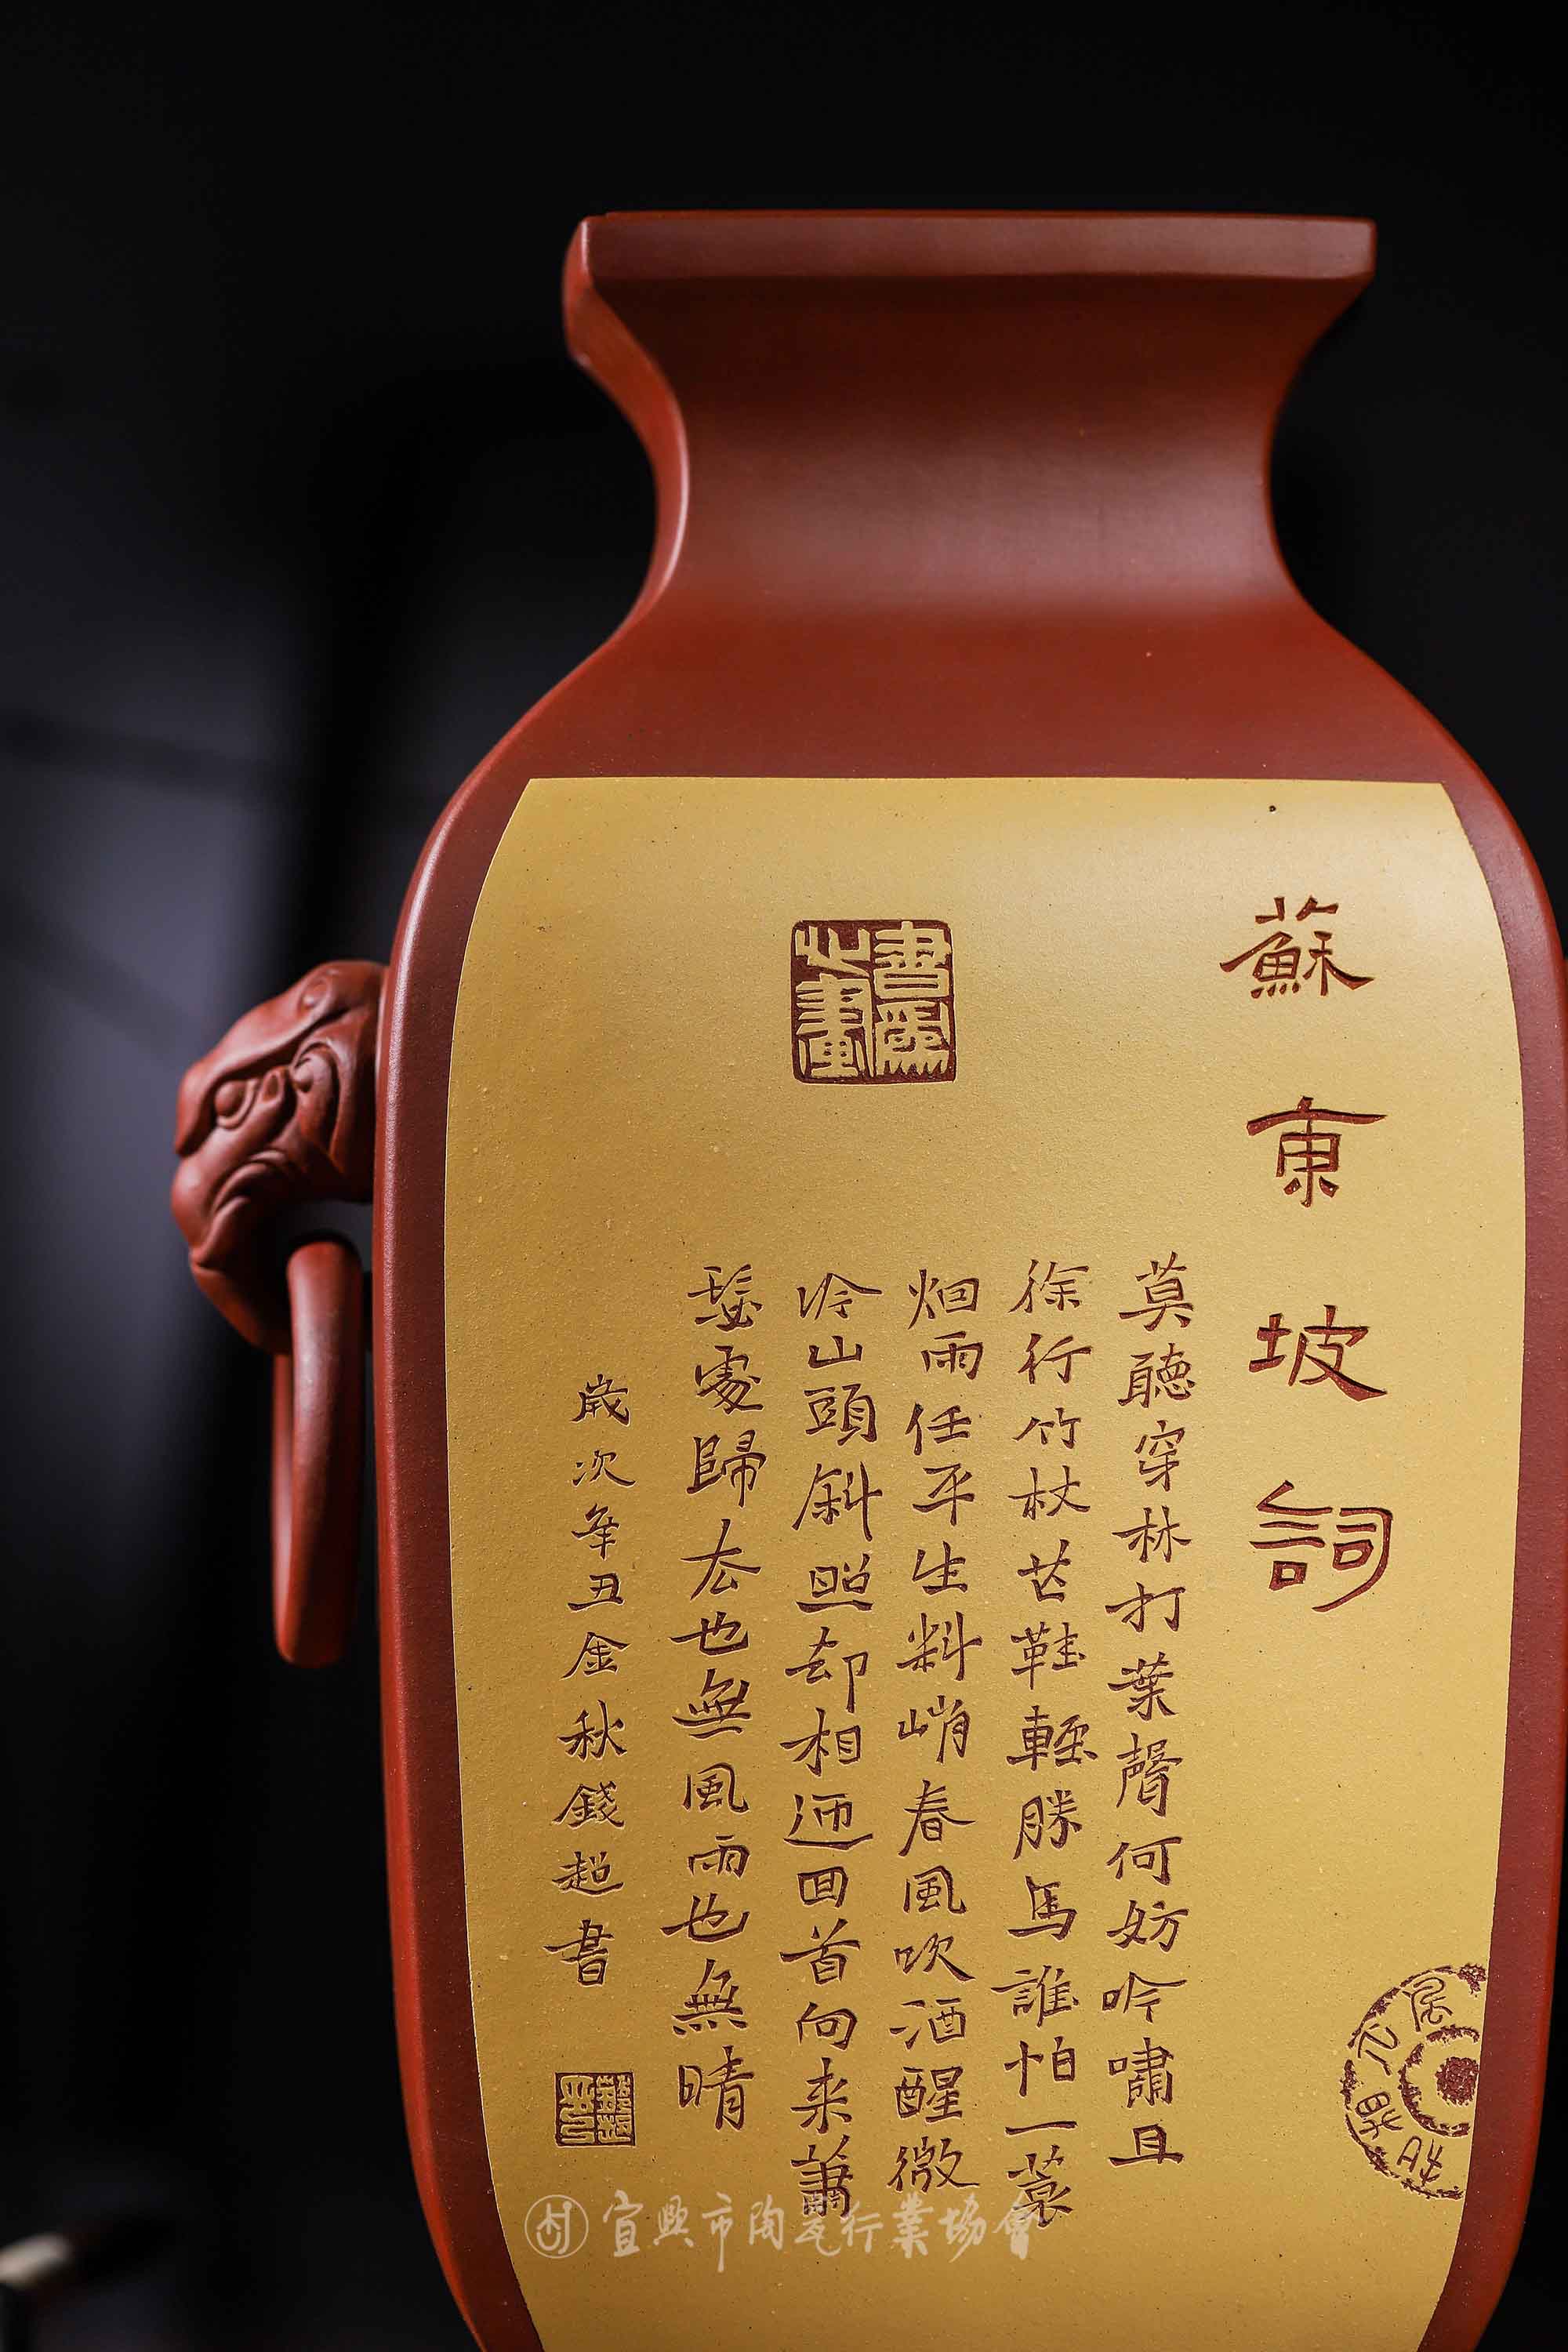 蘇東坡詞
莫聽穿林打葉聲何妨吟嘯且
徐行竹杖芒鞋輕勝馬誰怕一蓑
烟雨任平生料峭春風吹酒醒微
冷山頭斜照却相迎回首向来蕭
瑟處歸去也無風雨也無晴
歲次辛丑金秋錢超書
書爲心畫
宜興市陶瓷行業協會